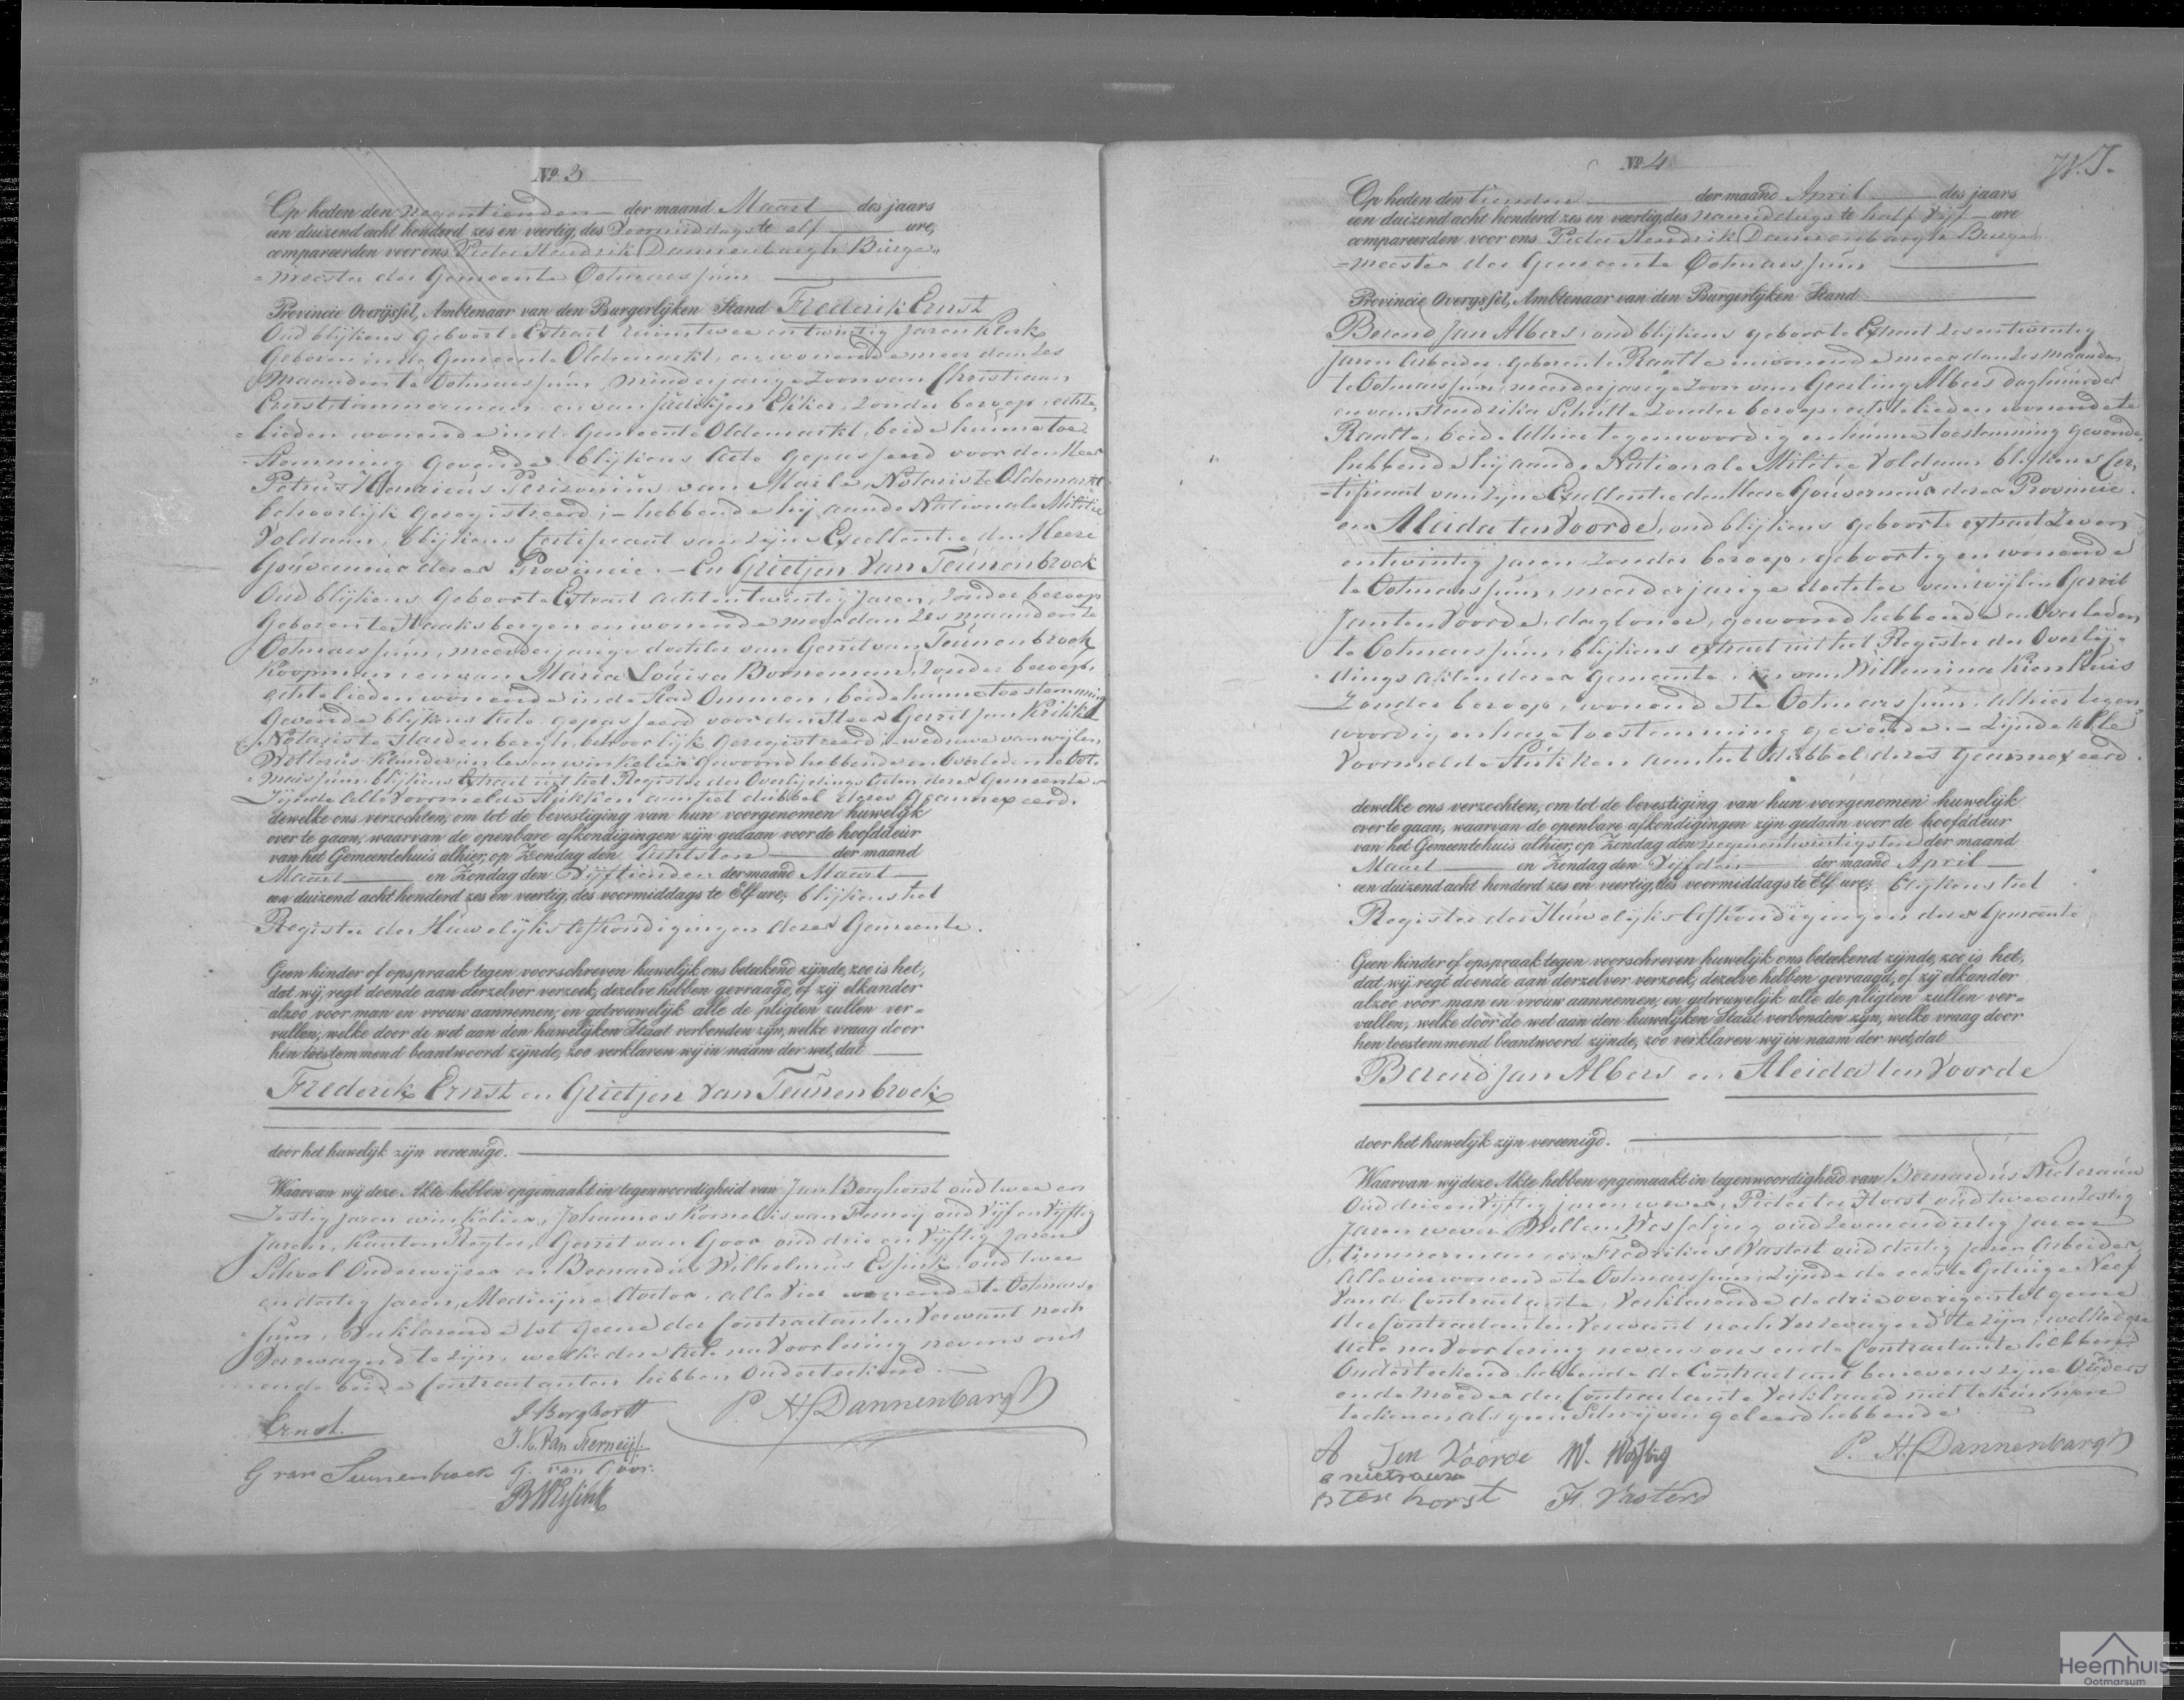 Nº 3
Op heden den negentienden der maand Maart des jaars
een duizend acht honderd zes en veertig, des voormiddags te elf ure,
compareerden voor ons Pieter Hendrik Dannenbargh Burge„
=meester der Gemeente Ootmarssum
Provincie Overijssel, Ambtenaar van den Burgerlijken Stand Frederik Ernst
Oud blijkens geboorte Extract ruim twee en twintig Jaren Klerk
Geboren in de Gemeente Oldemarkt, en wonende meer dan zes
maanden te Ootmarssum, minderjarige Zoon van Christiaan
Ernst timmerman en van zonder beroep, echte„
=lieden wonende in de Gemeente Oldemarkt, beide hunne toe
=stemming gevende blijkens Acte gepasseerd voor den Heer
Petrus Henricus Perizonius van Marle Notaris te Oldemarkt
behoorlijk geregistreerd; – hebbende hij aan de Nationale Militie
Voldaan, blijkens Certificaat van Zijne Excellentie den Heere
Gouverneur dezer Provincie. – En Grietjen Van Teunenbroek
Oud blijkens Geboorte Extract acht en twintig Jaren, Zonder beroep
Geboren te Haaksbergen en wonende meer dan zes maanden te
Ootmarssum, meerderjarige dochter van Gerrit van Teunenbroek
Koopman, en van Maria Louisa Borneman, Zonder beroep,
echtelieden wonende in de Stad Ommen, beide hunne toestemming
gevende blijkens Acte gepasseerd voor den Heer Gerrit Jan
Notaris te Hardenbergh, behoorlijk geregistreerd, – weduwe van wijlen
Wolterus Klunder in leven winkelier gewoond hebbende en Overleden te Oot„
=marssum blijkens Extract uit het Register der Overlijdings Acten dezer Gemeente.
Zijnde alle Voormelde Stukken aan het dubbel dezes geannexeerd.
dewelke ons verzochten, om tot de bevestiging van hun voorgenomen huwelijk
over te gaan, waarvan de openbare afkondigingen zijn gedaan voor de hoofddeur
van het Gemeentehuis alhier, op Zondag den achtsten der maand
Maart en Zondag den Vijftienden der maand Maart
een duizend acht honderd zes en veertig, des voormiddags te Elf ure; blijkens het
Register der Huwelijks Afkondigingen dezer Gemeente.
Geen hinder of opspraak tegen voorschreven huwelijk ons beteekend zijnde, zoo is het,
dat wij, regt doende aan derzelver verzoek, dezelve hebben gevraagd, of zij elkander
alzoo voor man en vrouw aannemen, en getrouwelijk alle de pligten zullen ver=
vullen, welke door de wet aan den huwelijken Staat verbonden zijn, welke vraag door
hen toestemmend beantwoord zijnde, zoo verklaren wij in naam der wet, dat
Frederik Ernst en Grietjen Van Teunenbroek
door het huwelijk zijn vereenigd.
Waarvan wij deze Akte hebben opgemaakt in tegenwoordigheid van Jan Borghorst oud twee en
Zestig Jaren winkelier, Johannes Kornelis van Ferneij oud Vijf en Vijftig
Jaren, Kanton Regter, Gerrit van Goor oud drie en Vijftig Jaren
School Onderwijzer en Bernardus Wilhelmus Essink oud twee
en dertig Jaren, Medicijne Doctor, alle Vier wonende te Ootmars„
=sum, Verklarende tot geene der Contractanten Verwant noch
Verzwagerd te zijn, welke deze Acte na Voorlezing nevens ons
en de beide Contractanten hebben Onderteekend. –
Ernst. J Borghorst P. H. Dannenbargh
J. K. Van Ferneij
G van Teunenbroek G. van Goor.
BWEssink
Nº 4
Op heden den tienden der maand April des jaars
een duizend acht honderd zes en veertig, des namiddags te half Vijf ure
compareerden voor ons Pieter Hendrik Dannenbargh Burge„
=meester der Gemeente Ootmarssum
Provincie Overijssel, Ambtenaar van den Burgerlijken Stand
Berend Jan Albers, oud blijkens geboorte Extract zes en twintig
Jaren Arbeider, geboren te Raalte en wonende meer dan zes maanden
te Ootmarssum, meerderjarige Zoon van Geerling Albers daghuurder
en van Hendrika Schutte Zonder beroep, echtelieden, wonende te
Raalte, beide Alhier tegenwoordig en hunne toestemming gevende,
hebbende hij aan de Nationale Militie Voldaan blijkens Cer„
=tificaat van Zijne Excellentie den Heere Gouverneur dezer Provincie.
en Aleida ten Voorde, oud blijkens geboorte extract Zeven
en twintig Jaren Zonder beroep, geboortig en wonende
te Ootmarssum, meerderjarige dochter van wijlen Gerrit
Jan ten Voorde, dagloner, gewoond hebbende en Overleden
te Ootmarssum, blijkens extract uit het Register der Overlij=
dings Akten dezer Gemeente, en van Willemina Kienhuis
Zonder beroep, wonende te Ootmarssum, Alhier tegen„
woordig en hare toestemming gevende. – Zijnde Alle
Voormelde Stukken aan het dubbel dezes geannexeerd.
dewelke ons verzochten, om tot de bevestiging van hun voorgenomen huwelijk
over te gaan, waarvan de openbare afkondigingen zijn gedaan voor de hoofddeur
van het Gemeentehuis alhier, op Zondag den negenentwintigsten der maand
Maart en Zondag den Vijfden der maand April
een duizend acht honderd zes en veertig, des voormiddags te Elf ure; blijkens het
Register der Huwelijks Afkondigingen dezer Gemeente
Geen hinder of opspraak tegen voorschreven huwelijk ons beteekend zijnde, zoo is het,
dat wij regt doende aan derzelver verzoek, dezelve hebben gevraagd, of zij elkander
alzoo voor man en vrouw aannemen, en getrouwelijk alle de pligten zullen ver=
vullen, welke door de wet aan den huwelijken Staat verbonden zijn, welke vraag door
hen toestemmend beantwoord zijnde, zoo verklaren wij in naam der wet, dat
Berend Jan Albers en Aleida ten Voorde
door het huwelijk zijn vereenigd.
Waarvan wij deze Akte hebben opgemaakt in tegenwoordigheid van Bernardus
Oud drie en Vijftig jaren wever, Pieter ter Horst oud twee en Zestig
Jaren wever, Willem Wesseling oud Zeven en dertig Jaren
timmerman en Fredrikus Vastert oud dertig jaren Arbeider
Alle vier wonende te Ootmarssum, Zijnde de eerste Getuige Neef
Van de Contractante, Verklarende de drie overigen tot geene
der Contractanten Verwant noch Verzwagerd te zijn, welke deze
Acte na Voorlezing nevens ons en de Contractante hebben
Onderteekend hebbende de Contractant benevens zijne Ouders
en de Moeder der Contractante Verklaard niet te kunnen
teekenen als geen Schrijven geleerd hebbende
A Ten Voorde W. P. H. Dannenbargh
P ter horst F. Vasterd
Heemhuis
Ootmarsum